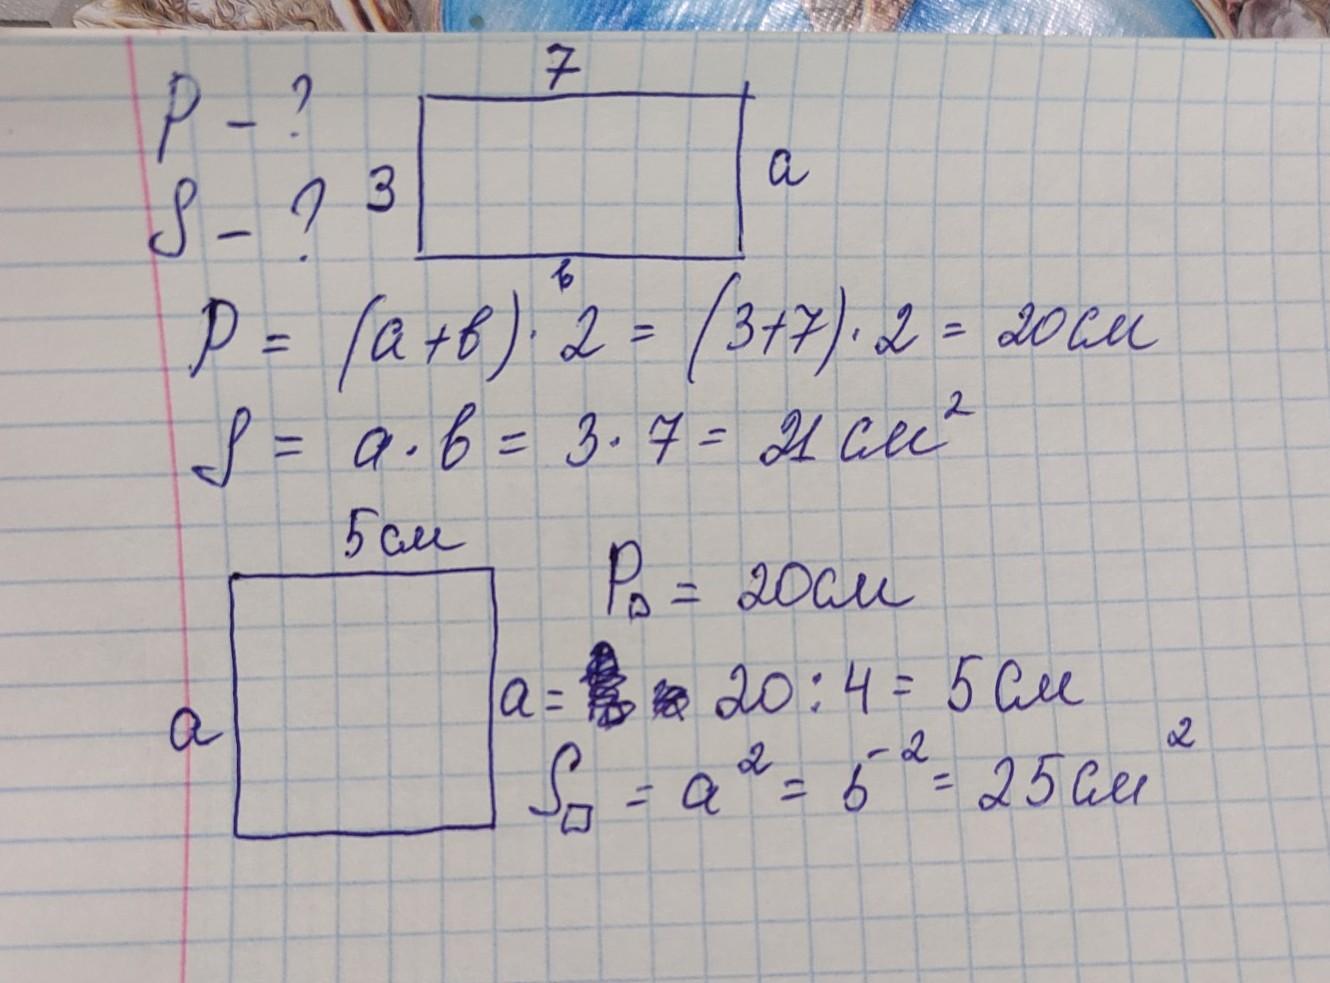 P - ?
7
S - ?
3
a
в
P = (a+в)·2 = (3+7)·2 = 20см
S = a·в = 3·7 = 21 см²
5см
P□ = 20см
a
a = 20:4 = 5см
S□ = a² = 5² = 25см²